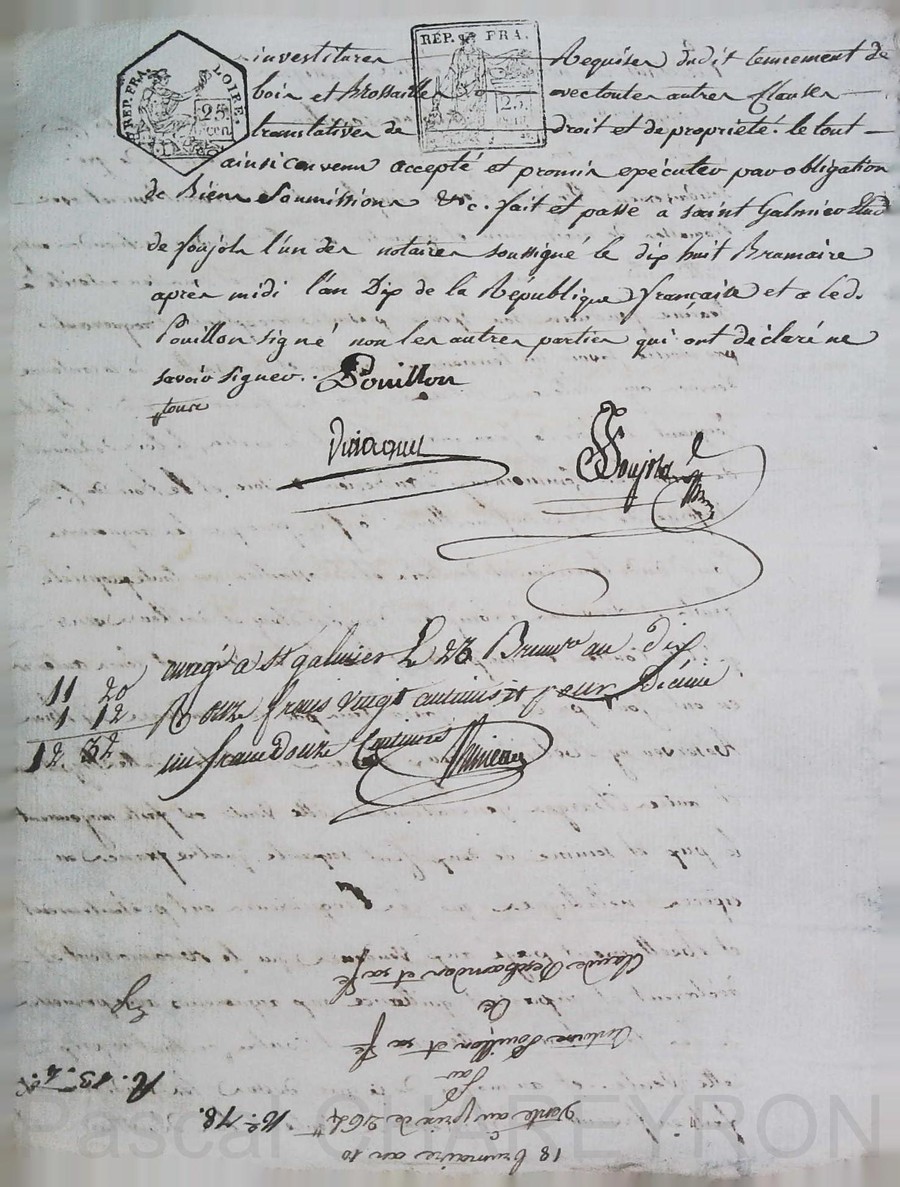 REP. FRA. LOIRE.
25. cen
REP. FRA.
25.
investitures Requises dudit tennement de
bois et Brossailles avec toutes autres Clauses
translatives de droit et de propriété. le tout
ainsi convenu accepté et promis exécuter par obligation
de Biens Soumissions &c. fait et passé a saint Galmier
de soujols l'un des notaires soussigné le dix huit Brumaire
après midi l'an Dix de la République française et a led.
Pouillon signé non les autres parties qui ont déclaré ne
savoir signer. Pouillon
Soujols
enregé a St galmier le 23 Brumre an dix
11 20
R onze francs vingt centimes et pour Décime
1 12
un franc Douze Centimes
12 32
18 brumaire an 10
Vente au prix de 264
No. 78.
Par
Antoine Pouillon et sa fe
De
Claude et sa fe